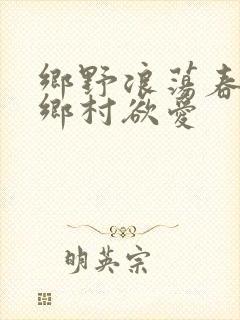 鄉野浪蕩春
鄉村欲愛
明英宗